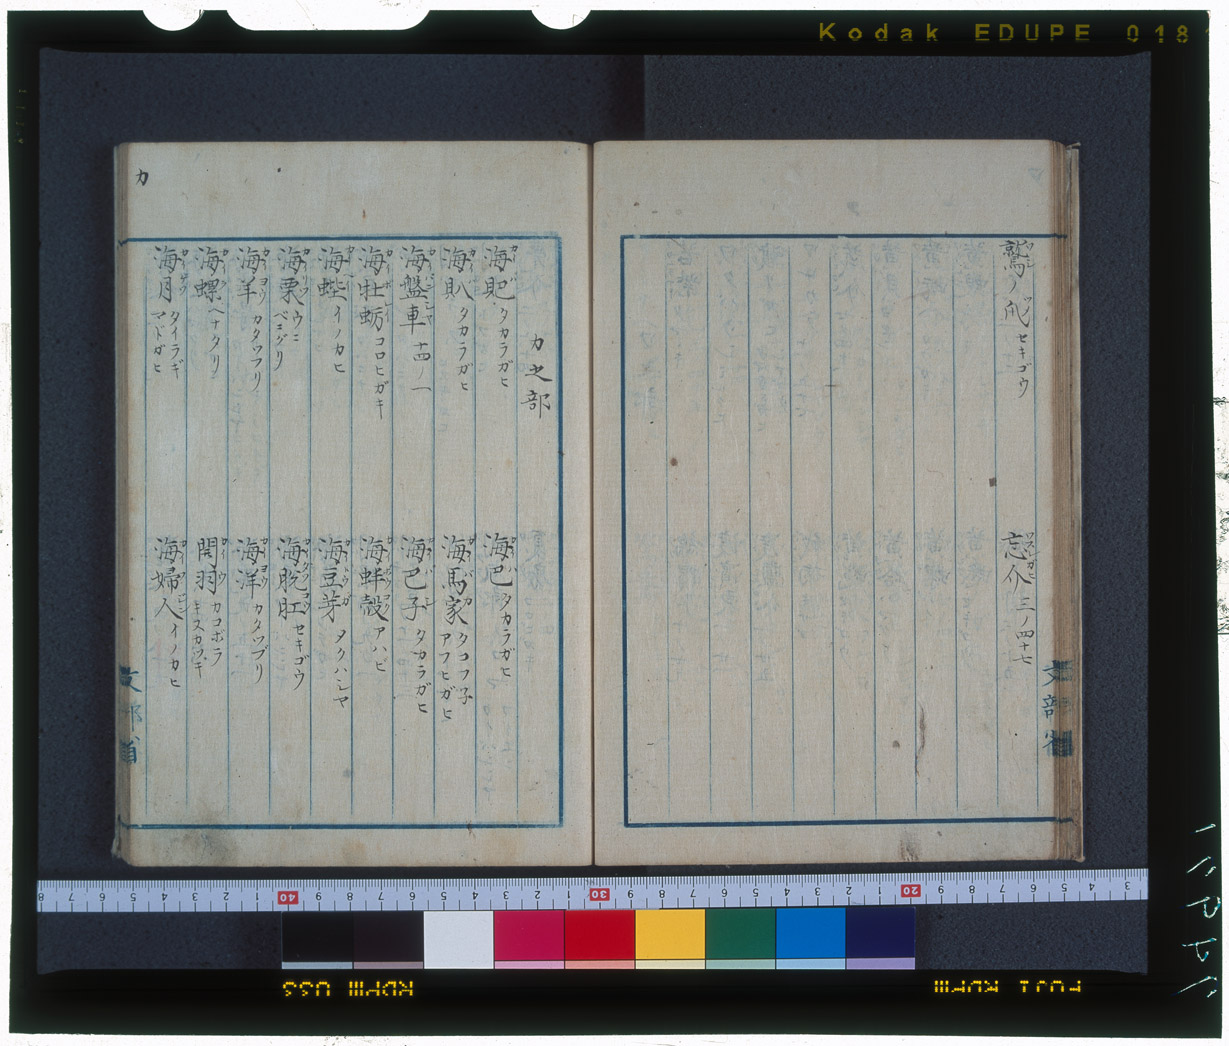 Kodak EDUPE 018
鷲ノ爪 セキゴウ
忘介 三ノ四十七
文部省
カ
カ之部
海肥 タカラガヒ
海巴 タカラガヒ
海䝛 タカラガヒ
海馬家 タコフ子 アフヒガヒ
海盤車 十四ノ一
海巴子 タカラガヒ
海牡蛎 コロヒガキ
海蚌殻 アハビ
海蛭 イノカヒ
海豆芽 メクハジヤ
海栗 ウニ ベニグリ
海脱肛 セキゴウ
海羊 カタツフリ
海洋 カタツブリ
海螺 ヘナタリ
開羽 カコボラ キスカツキ
海月 タイラギ マドガヒ
海婦人 イノカヒ
文部省
FUJI RDPIII
RDPIII